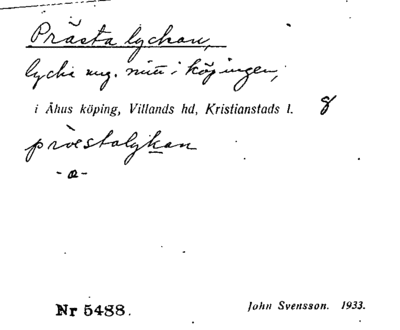 Prästa lyckan,
lycka ung. mitt i köpingen,
i Åhus köping, Villands hd, Kristianstads l. 8
pròestalykan
-a-
Nr 5488.
John Svensson. 1933.